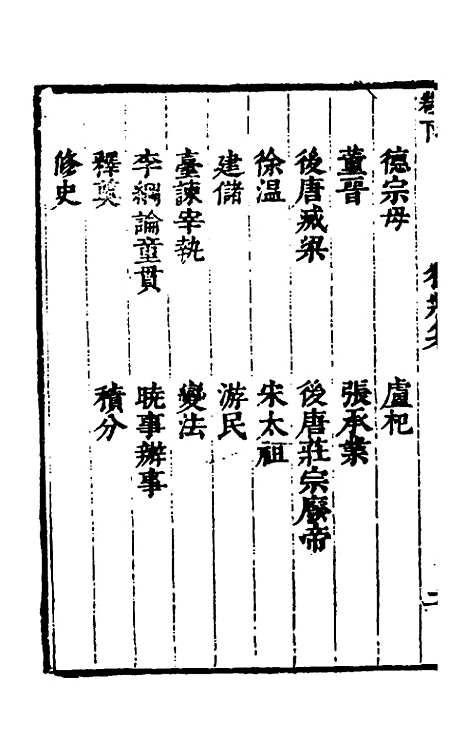 卷下
二
德宗母　盧杞
董晋　張承業
後唐滅梁　後唐莊宗廢帝
徐温　宋太祖
建儲　游民
臺諫宰執　變法
李綱論童貫　曉事辦事
釋奠　積分
修史